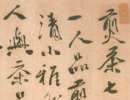 煎茶七
一人品煎
清小雅
人與茶